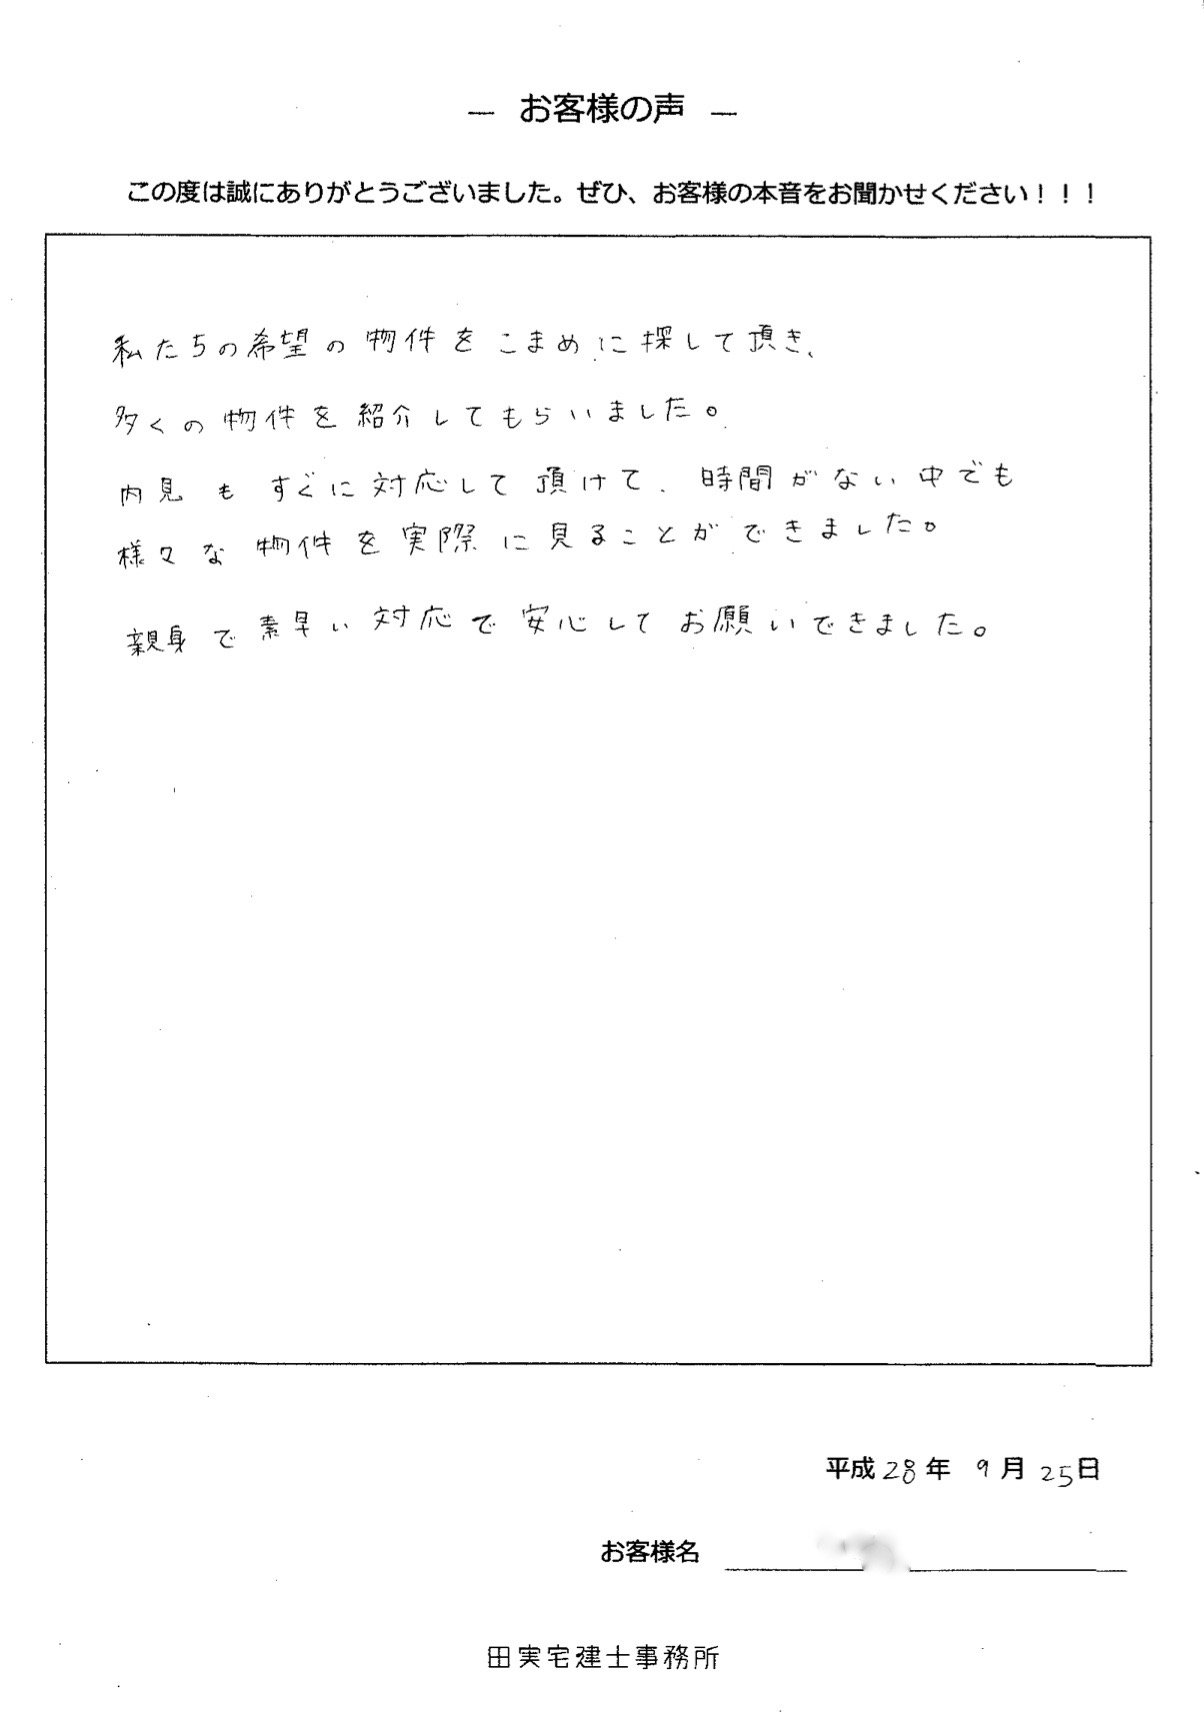 ― お客様の声 ―
この度は誠にありがとうございました。ぜひ、お客様の本音をお聞かせください！！！
私たちの希望の物件をこまめに探して頂き、
多くの物件を紹介してもらいました。
内見もすぐに対応して頂けて、時間がない中でも
様々な物件を実際に見ることができました。
親身で素早い対応で安心してお願いできました。
平成28年 9月25日
お客様名
田実宅建士事務所